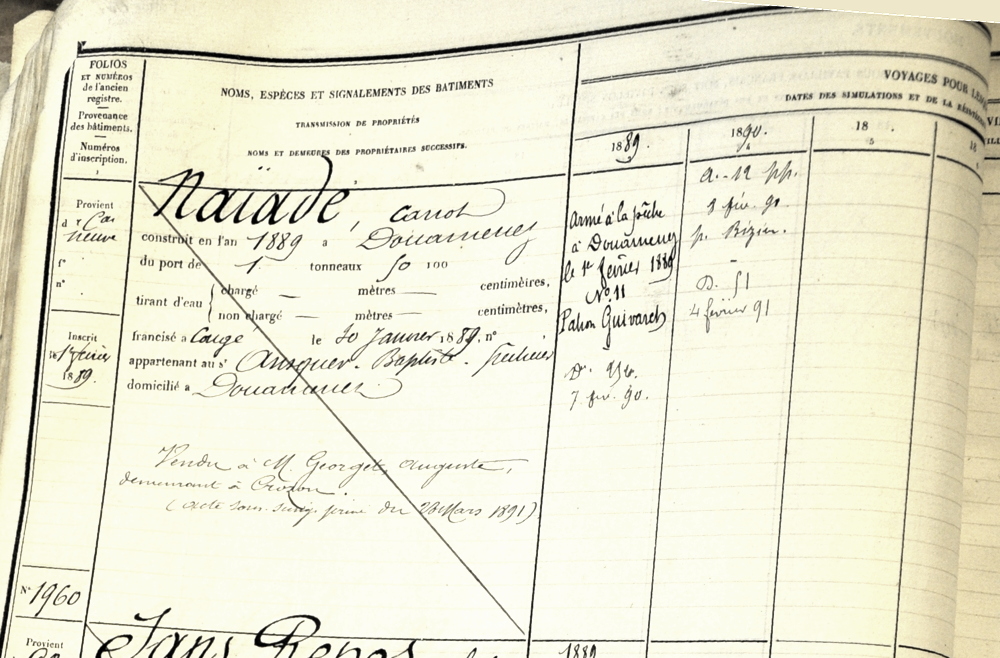 FOLIOS
ET NUMÉROS
de l'ancien
registre.
Provenance
des bâtiments.
Numéros
d'inscription.
NOMS, ESPÈCES ET SIGNALEMENTS DES BATIMENTS
TRANSMISSION DE PROPRIÉTÉS
NOMS ET DEMEURES DES PROPRIÉTAIRES SUCCESSIFS.
VOYAGES POUR
DATES DES SIMULATIONS ET DE LA
1889.
1890.
18
18
Provient
neuve
f°
n°
Inscrit
février
1889.
Naïade, canot
construit en l'an 1889 a Douarnenez
du port de 1 tonneaux 50 100
tirant d'eau { chargé — mètres — centimèires,
non chargé — mètres — centimètres,
francisé a le 30 Janvier 1889, n°
appartenant au sr Baptiste.
domicilié a Douarnenez
Vendu à M. Georget, Auguste,
demeurant à Crozon.
(acte sous seing privé du 28 Mars 1891)
Armé à la pêche
à Douarnenez
le 1er février 1889
N° 11
Patron Guivarch
D.
7 fév. 90.
a. 12 pp.
8 fév. 90
p. Bizien.
D. 51
4 février 91
N° 1960
Provient
Sans Repos
1889